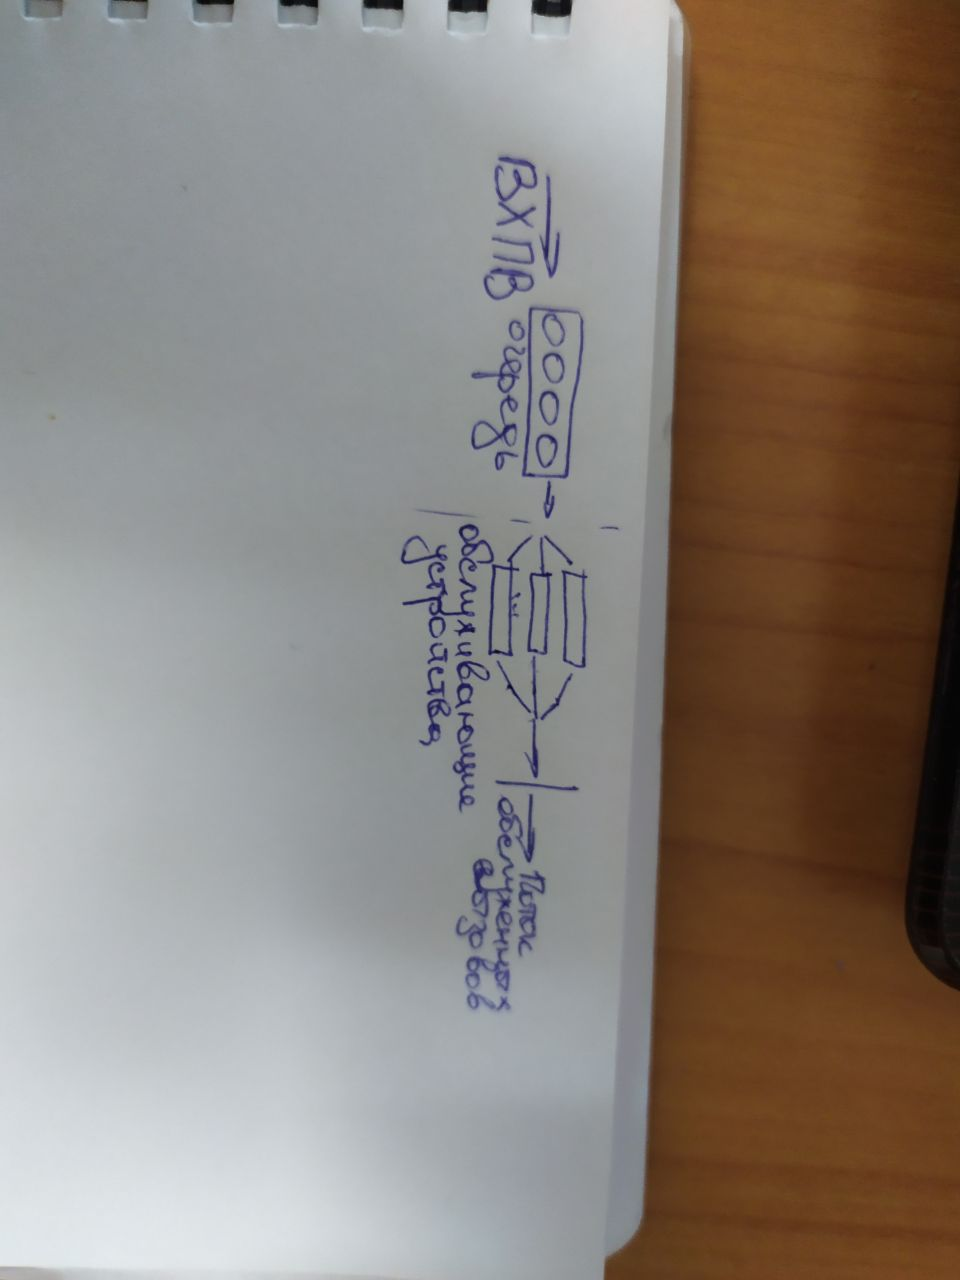 ВХПВ
очередь
обслуживающие
устройства
Поток
обслуженных
вызовов